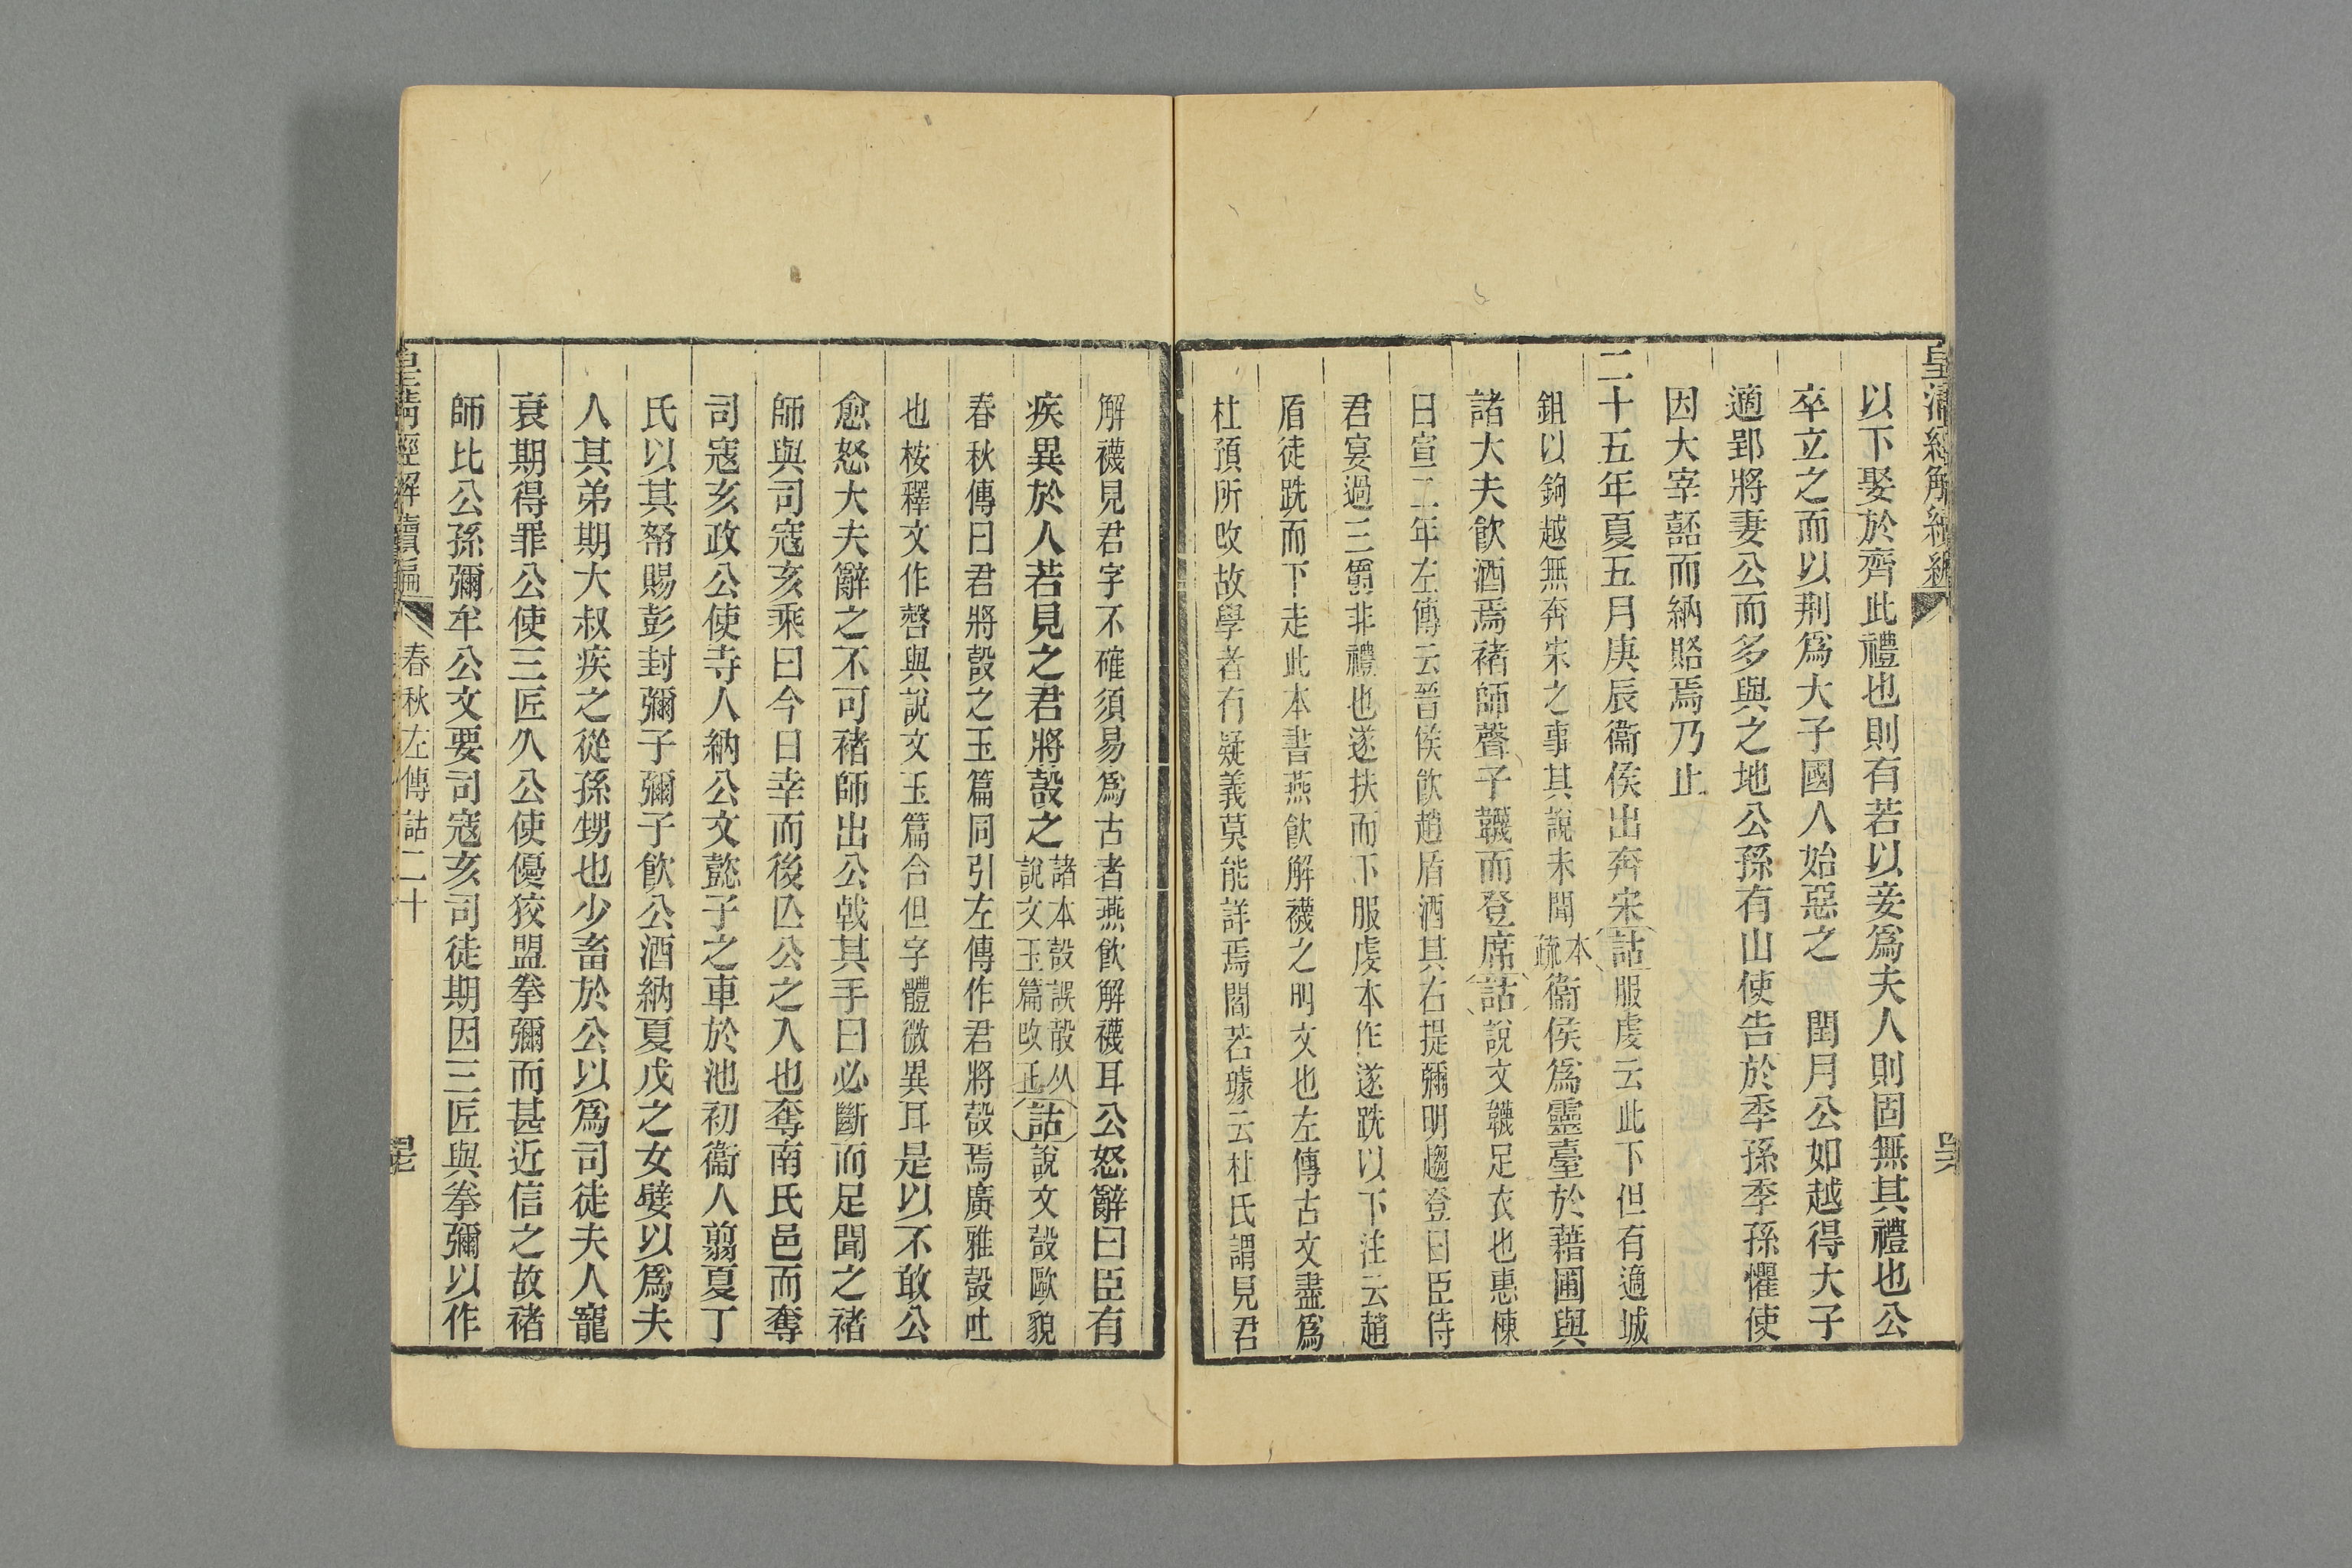 皇清經解續編
以下娶於齊此禮也則有若以妾爲夫人則固無其禮也公
卒立之而以荆爲大子國人始惡之　閏月公如越得大子
適郢將妻公而多與之地公孫有山使告於季孫季孫懼使
因大宰嚭而納賂焉乃止
二十五年夏五月庚辰衞侯出奔宋詁服虔云此下但有適城
鉏以鉤越無奔宋之事其說未聞本疏衞侯爲靈臺於藉圃與
諸大夫飮酒焉褚師聲子韤而登席詁說文韤足衣也惠棟
曰宣二年左傳云晉侯飮趙盾酒其右提彌明趨登曰臣侍
君宴過三爵非禮也遂扶而下服虔本作遂跣以下注云趙
盾徒跣而下走此本書燕飮解襪之明文也左傳古文盡爲
杜預所改故學者有疑義莫能詳焉閻若璩云杜氏謂見君
解襪見君字不確須易爲古者燕飮解襪耳公怒辭曰臣有
疾異於人若見之君將嗀之諸本嗀誤㱿从說文玉篇改正詁說文嗀歐貌
春秋傳曰君將嗀之玉篇同引左傳作君將嗀焉廣雅嗀吐
也桉釋文作㱿與說文玉篇合但字體微異耳是以不敢公
愈怒大夫辭之不可褚師出公戟其手曰必斷而足聞之褚
師與司寇亥乘曰今日幸而後亾公之入也奪南氏邑而奪
司寇亥政公使寺人納公文懿子之車於池初衞人翦夏丁
氏以其帑賜彭封彌子彌子飮公酒納夏戊之女嬖以爲夫
人其弟期大叔疾之從孫甥也少畜於公以爲司徒夫人寵
衰期得罪公使三匠久公使優狡盟拳彌而甚近信之故褚
師比公孫彌牟公文要司寇亥司徒期因三匠與拳彌以作
皇淸經解續編　春秋左傳詁二十